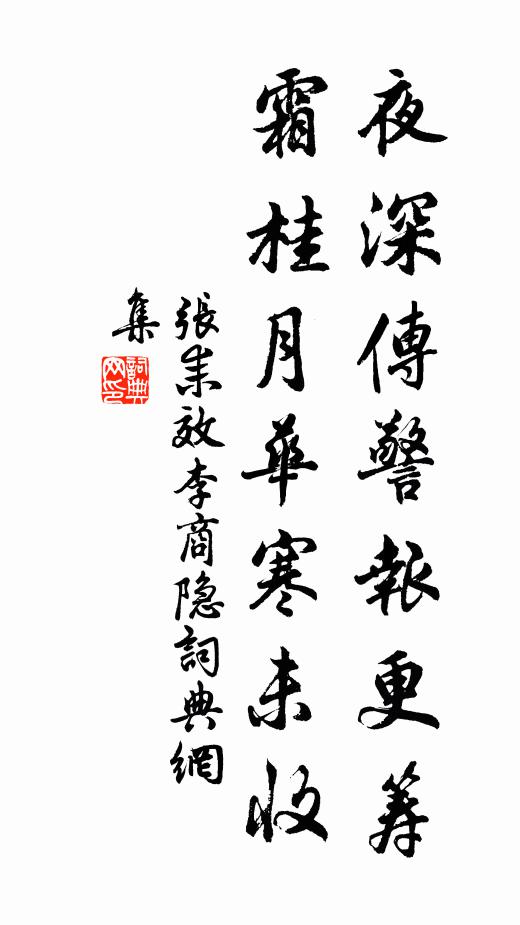 夜深傳警報更籌
霜桂月華寒未收
張耒效李商隐詞典網
集
詞典网印